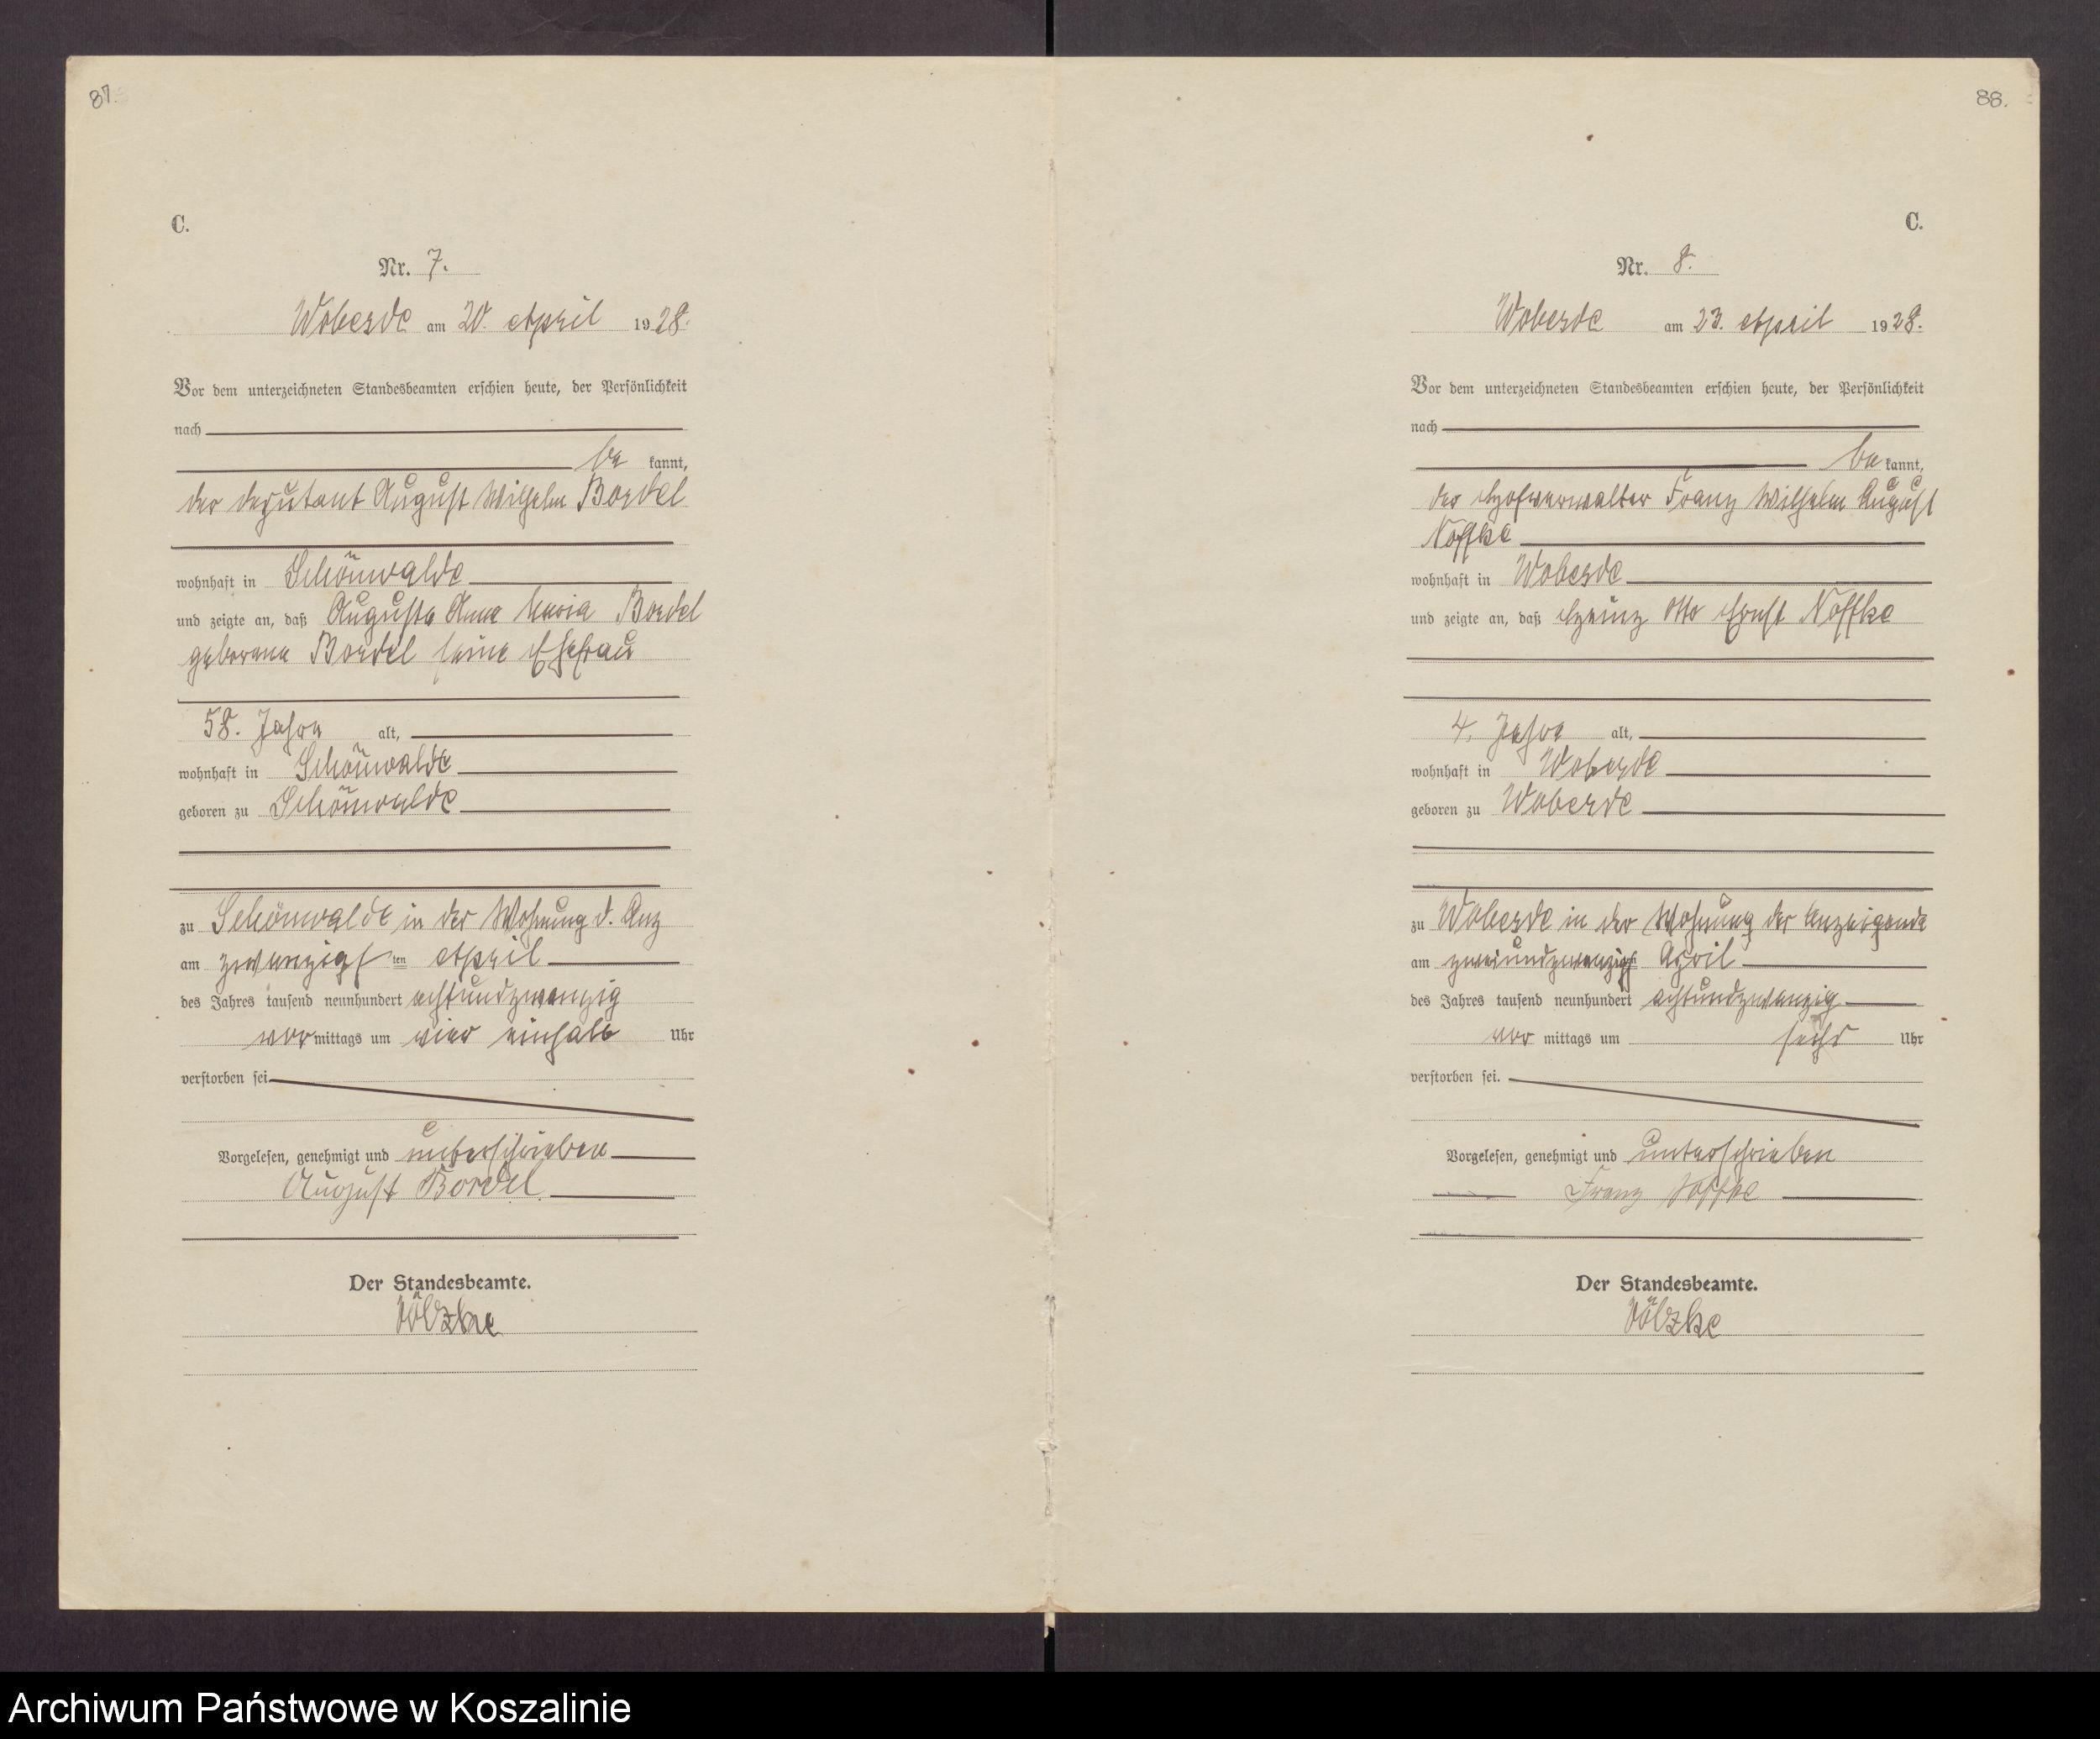 87.
C.
Nr. 7.
Woberde am 20. April 1928.
Vor dem unterzeichneten Standesbeamten erschien heute, der Persönlichkeit
nach
be kannt,
der Deputant August Wilhelm Bordel
wohnhaft in Schönwalde
und zeigte an, daß Auguste Anna Maria Bordel
geborene Bordel seine Ehefrau
58. Jahre alt,
wohnhaft in Schönwalde
geboren zu Schönwalde
zu Schönwalde in der Wohnung d. Anz
am zwanzigsten April
des Jahres tausend neunhundert achtundzwanzig
vormittags um vier einhalb Uhr
verstorben sei
Vorgelesen, genehmigt und unterschrieben
August Bordel
Der Standesbeamte.
Völzke
88.
C.
Nr. 8.
Woberde am 23. April 1928.
Vor dem unterzeichneten Standesbeamten erschien heute, der Persönlichkeit
nach
be kannt,
der Hofverwalter Franz Wilhelm August
Noffke
wohnhaft in Woberde
und zeigte an, daß Heinz Otto Ernst Noffke
4. Jahre alt,
wohnhaft in Woberde
geboren zu Woberde
zu Woberde in der Wohnung der Anzeigende
am zweiundzwanzigst April
des Jahres tausend neunhundert achtundzwanzig
vor mittags um sechs Uhr
verstorben sei.
Vorgelesen, genehmigt und unterschrieben
Franz Noffke
Der Standesbeamte.
Völzke
Archiwum Państwowe w Koszalinie